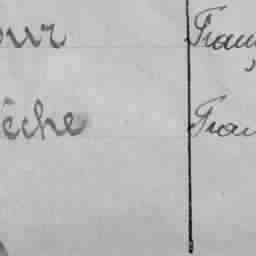 our Fran
êche Fran